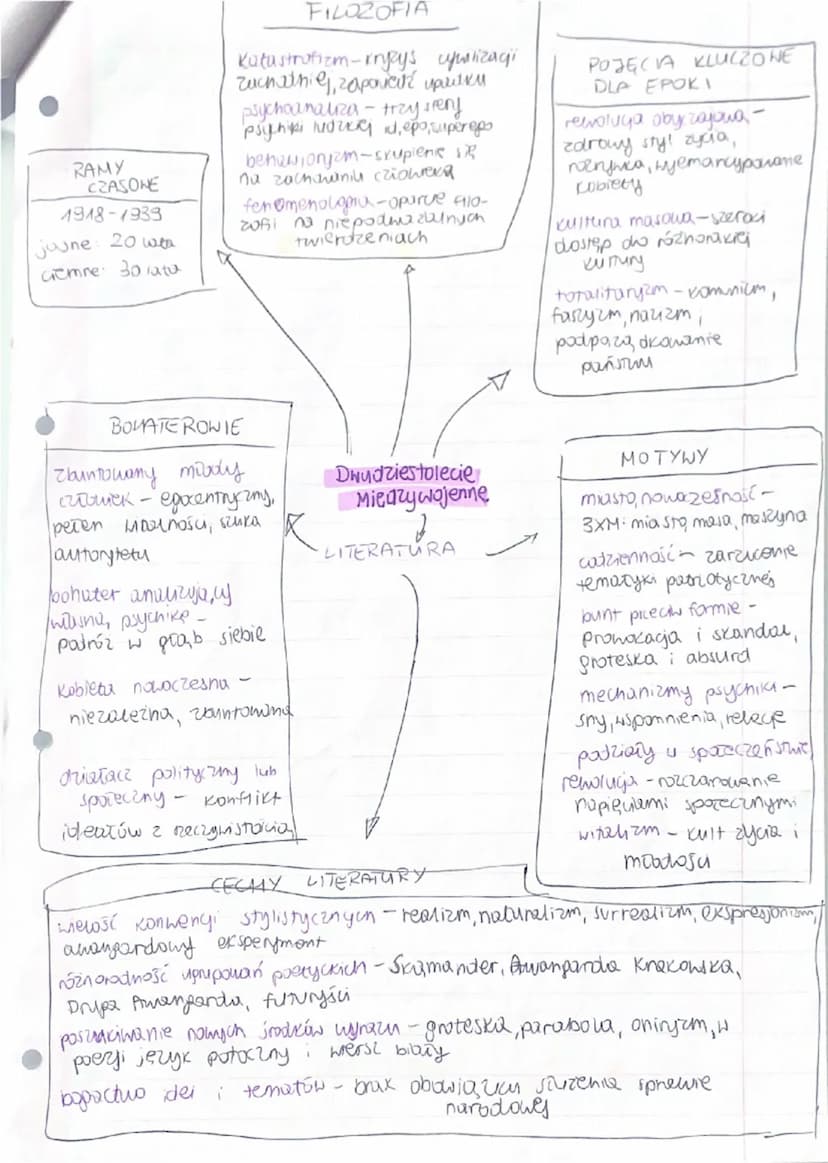 FILOZOFIA
katastrofizm - kryzys cywilizacji
zachodniej, zapowiedź upadku
psychoanaliza - trzy sfery
psychiki ludzkiej id, ego, superego
behawioryzm - skupienie się
na zachowaniu człowieka
fenomenologia - oparcie filo-
zofii na niepodważalnych
twierdzeniach
POJĘCIA KLUCZOWE
DLA EPOKI
rewolucja obyczajowa -
zdrowy styl życia,
rozrywka, wyemancypowane
kobiety
kultura masowa - szeroki
dostęp do różnorakiej
kultury
totalitaryzm - komunizm,
faszyzm, nazizm,
podporządkowanie
państwu
RAMY
CZASOWE
1918 - 1939
jasne: 20 lata
ciemne: 30 lata
Dwudziestolecie
Międzywojenne
LITERATURA
BOHATEROWIE
zbuntowany młody
człowiek - egocentryczny,
pełen witalności, szuka
autorytetu
bohater analizujący
własną psychikę -
podróż w głąb siebie
kobieta nowoczesna -
niezależna, zbuntowana
działacz polityczny lub
społeczny - konflikt
ideałów z rzeczywistością
MOTYWY
miasto, nowoczesność -
3XM: miasto, masa, maszyna
codzienność - zarzucenie
tematyki patriotycznej
bunt przeciw formie -
prowokacja i skandal,
groteska i absurd
mechanizmy psychiki -
sny, wspomnienia, relacje
podziały w społeczeństwie
rewolucja - rozczarowanie
napięciami społecznymi
witalizm - kult życia i
młodości
CECHY LITERATURY
wielość konwencji stylistycznych - realizm, naturalizm, surrealizm, ekspresjonizm,
awangardowy eksperyment
różnorodność ugrupowań poetyckich - Skamander, Awangarda Krakowska,
Druga Awangarda, futuryści
poszukiwanie nowych środków wyrazu - groteska, parabola, oniryzm, w
poezji język potoczny i wiersz biały
bogactwo idei i tematów - brak obowiązku służenia sprawie
narodowej